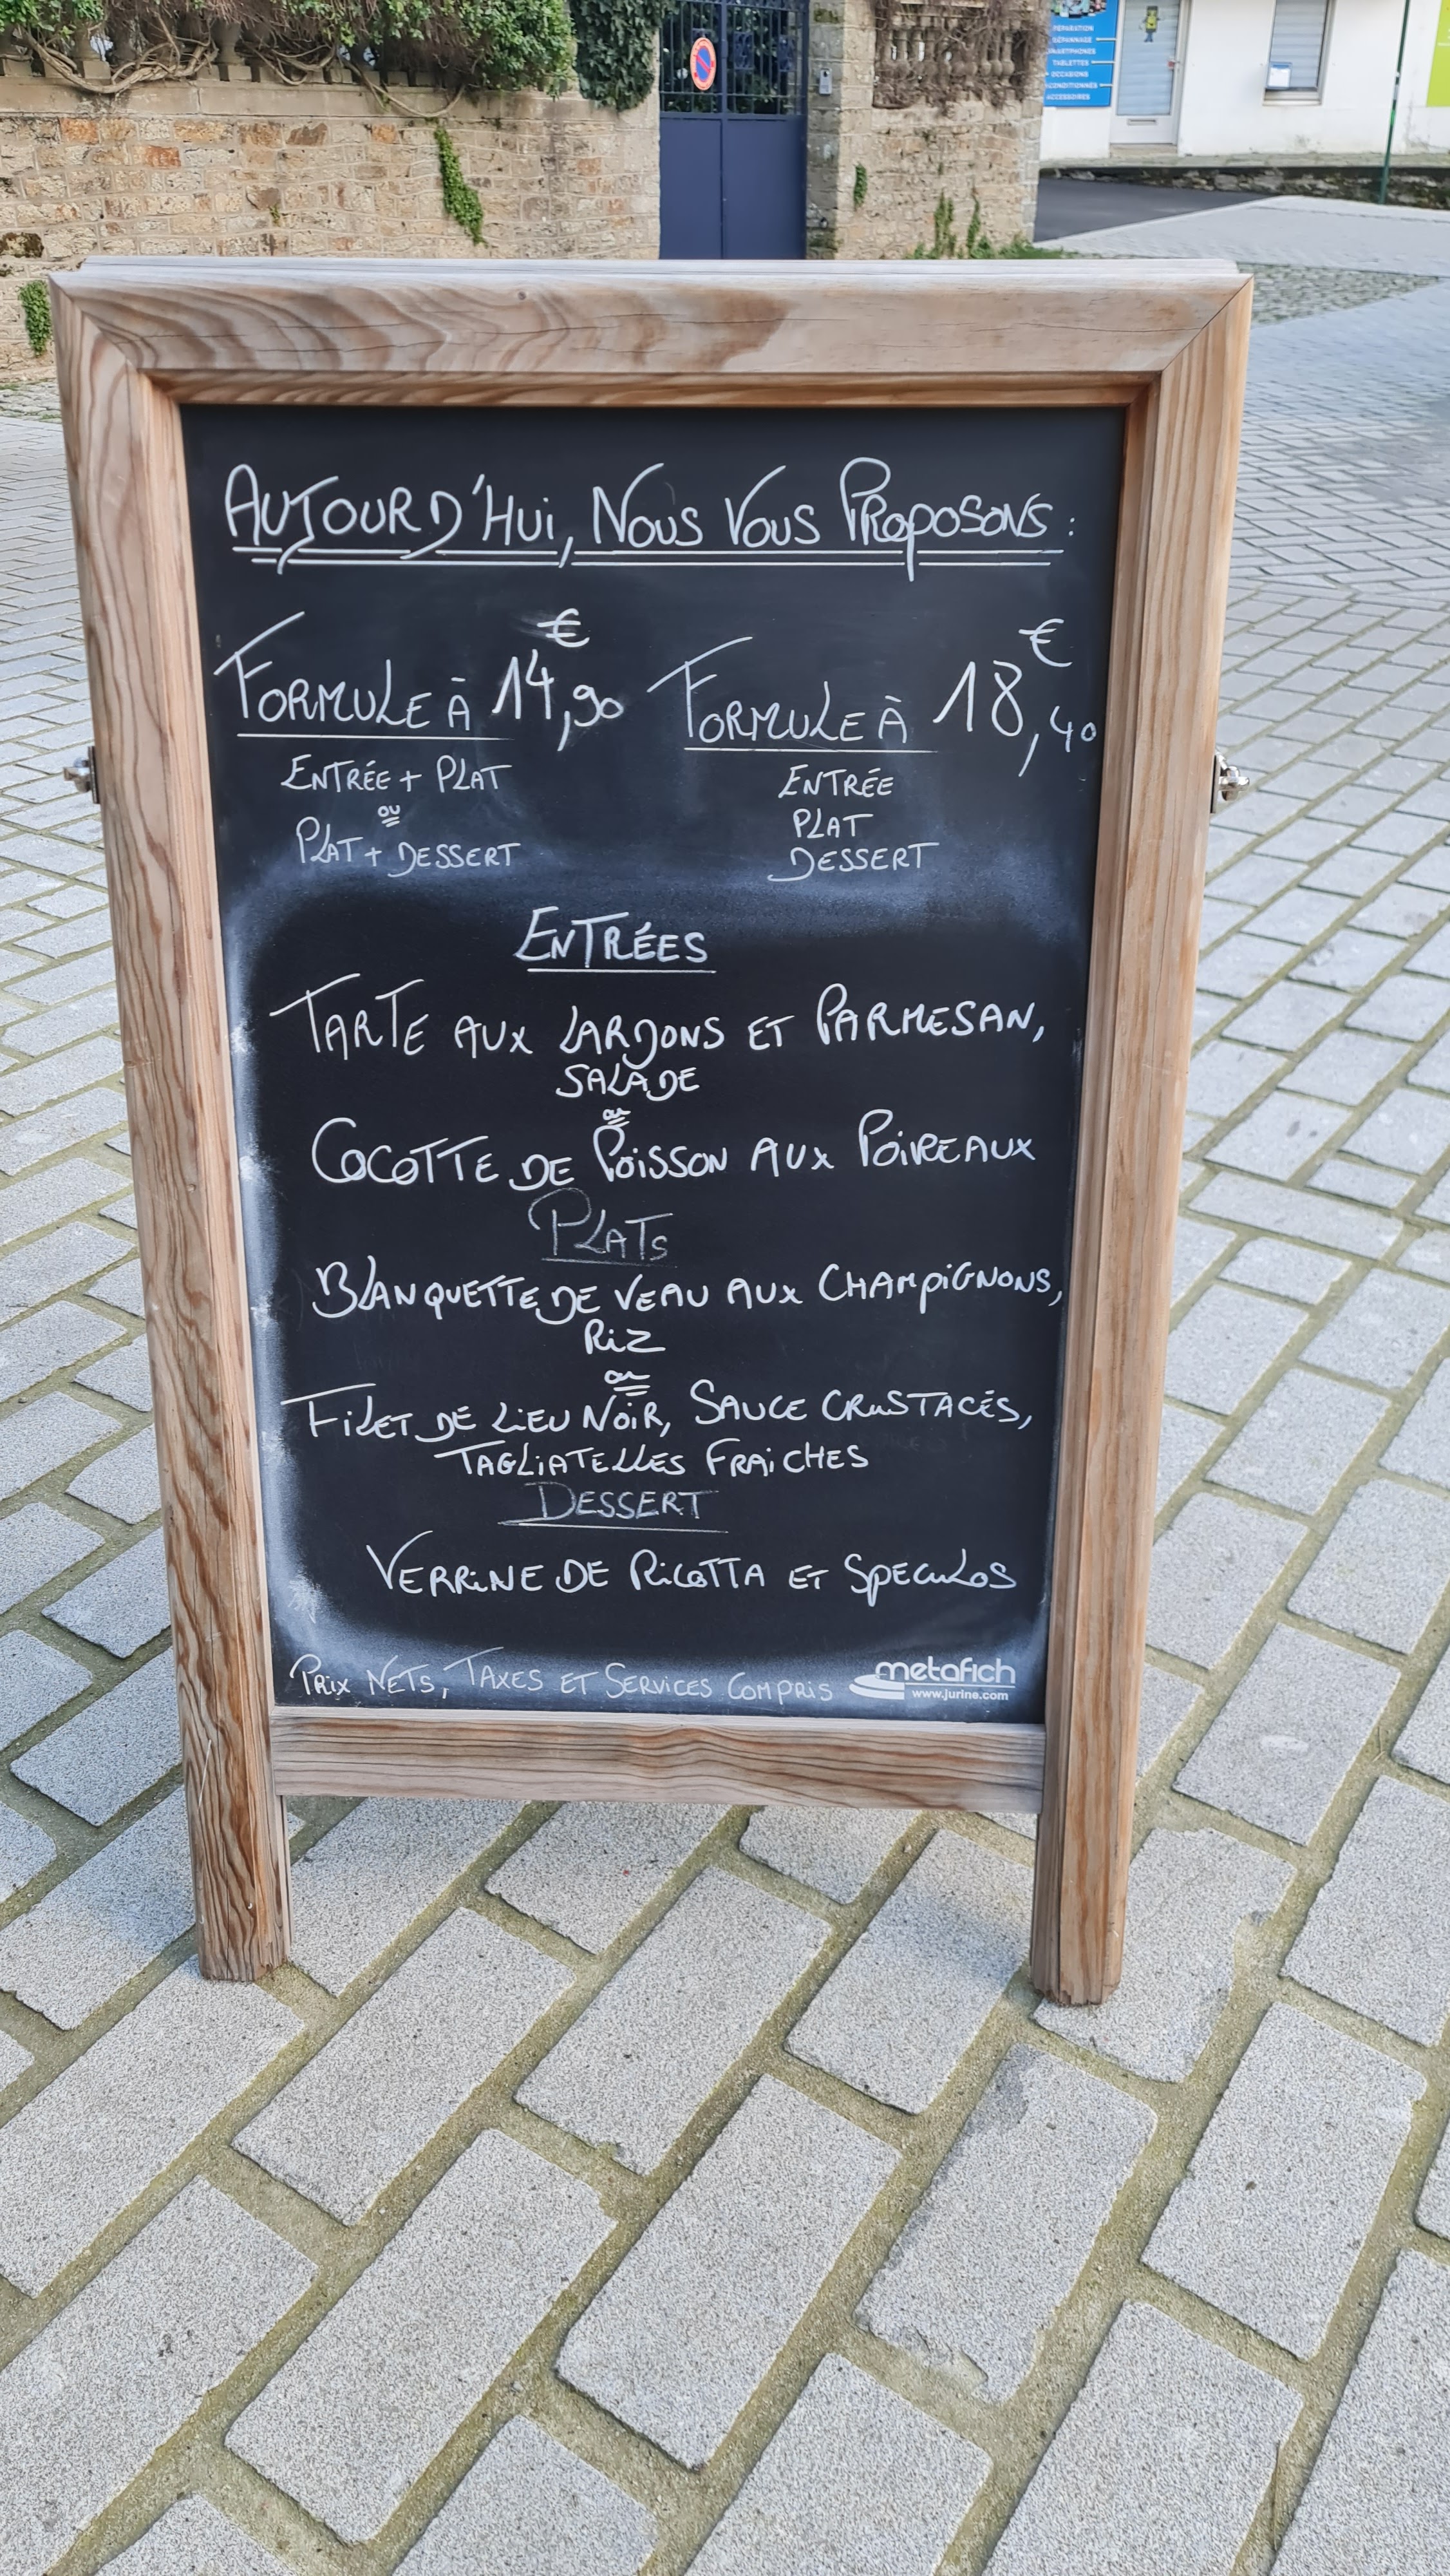 RÉPARATION
DÉPANNAGE
SMARTPHONES
TABLETTES
OCCASIONS
RECONDITIONNÉS
ACCESSOIRES
AUJOURD'HUI, NOUS VOUS PROPOSONS :
FORMULE À 14,90 €
ENTRÉE + PLAT
OU
PLAT + DESSERT
FORMULE À 18,40 €
ENTRÉE
PLAT
DESSERT
ENTRÉES
TARTE AUX LARDONS ET PARMESAN,
SALADE
OU
COCOTTE DE POISSON AUX POIREAUX
PLATS
BLANQUETTE DE VEAU AUX CHAMPIGNONS,
RIZ
OU
FILET DE LIEU NOIR, SAUCE CRUSTACÉS,
TAGLIATELLES FRAICHES
DESSERT
VERRINE DE RICOTTA ET SPECULOS
PRIX NETS, TAXES ET SERVICES COMPRIS
metafich
www.jurine.com